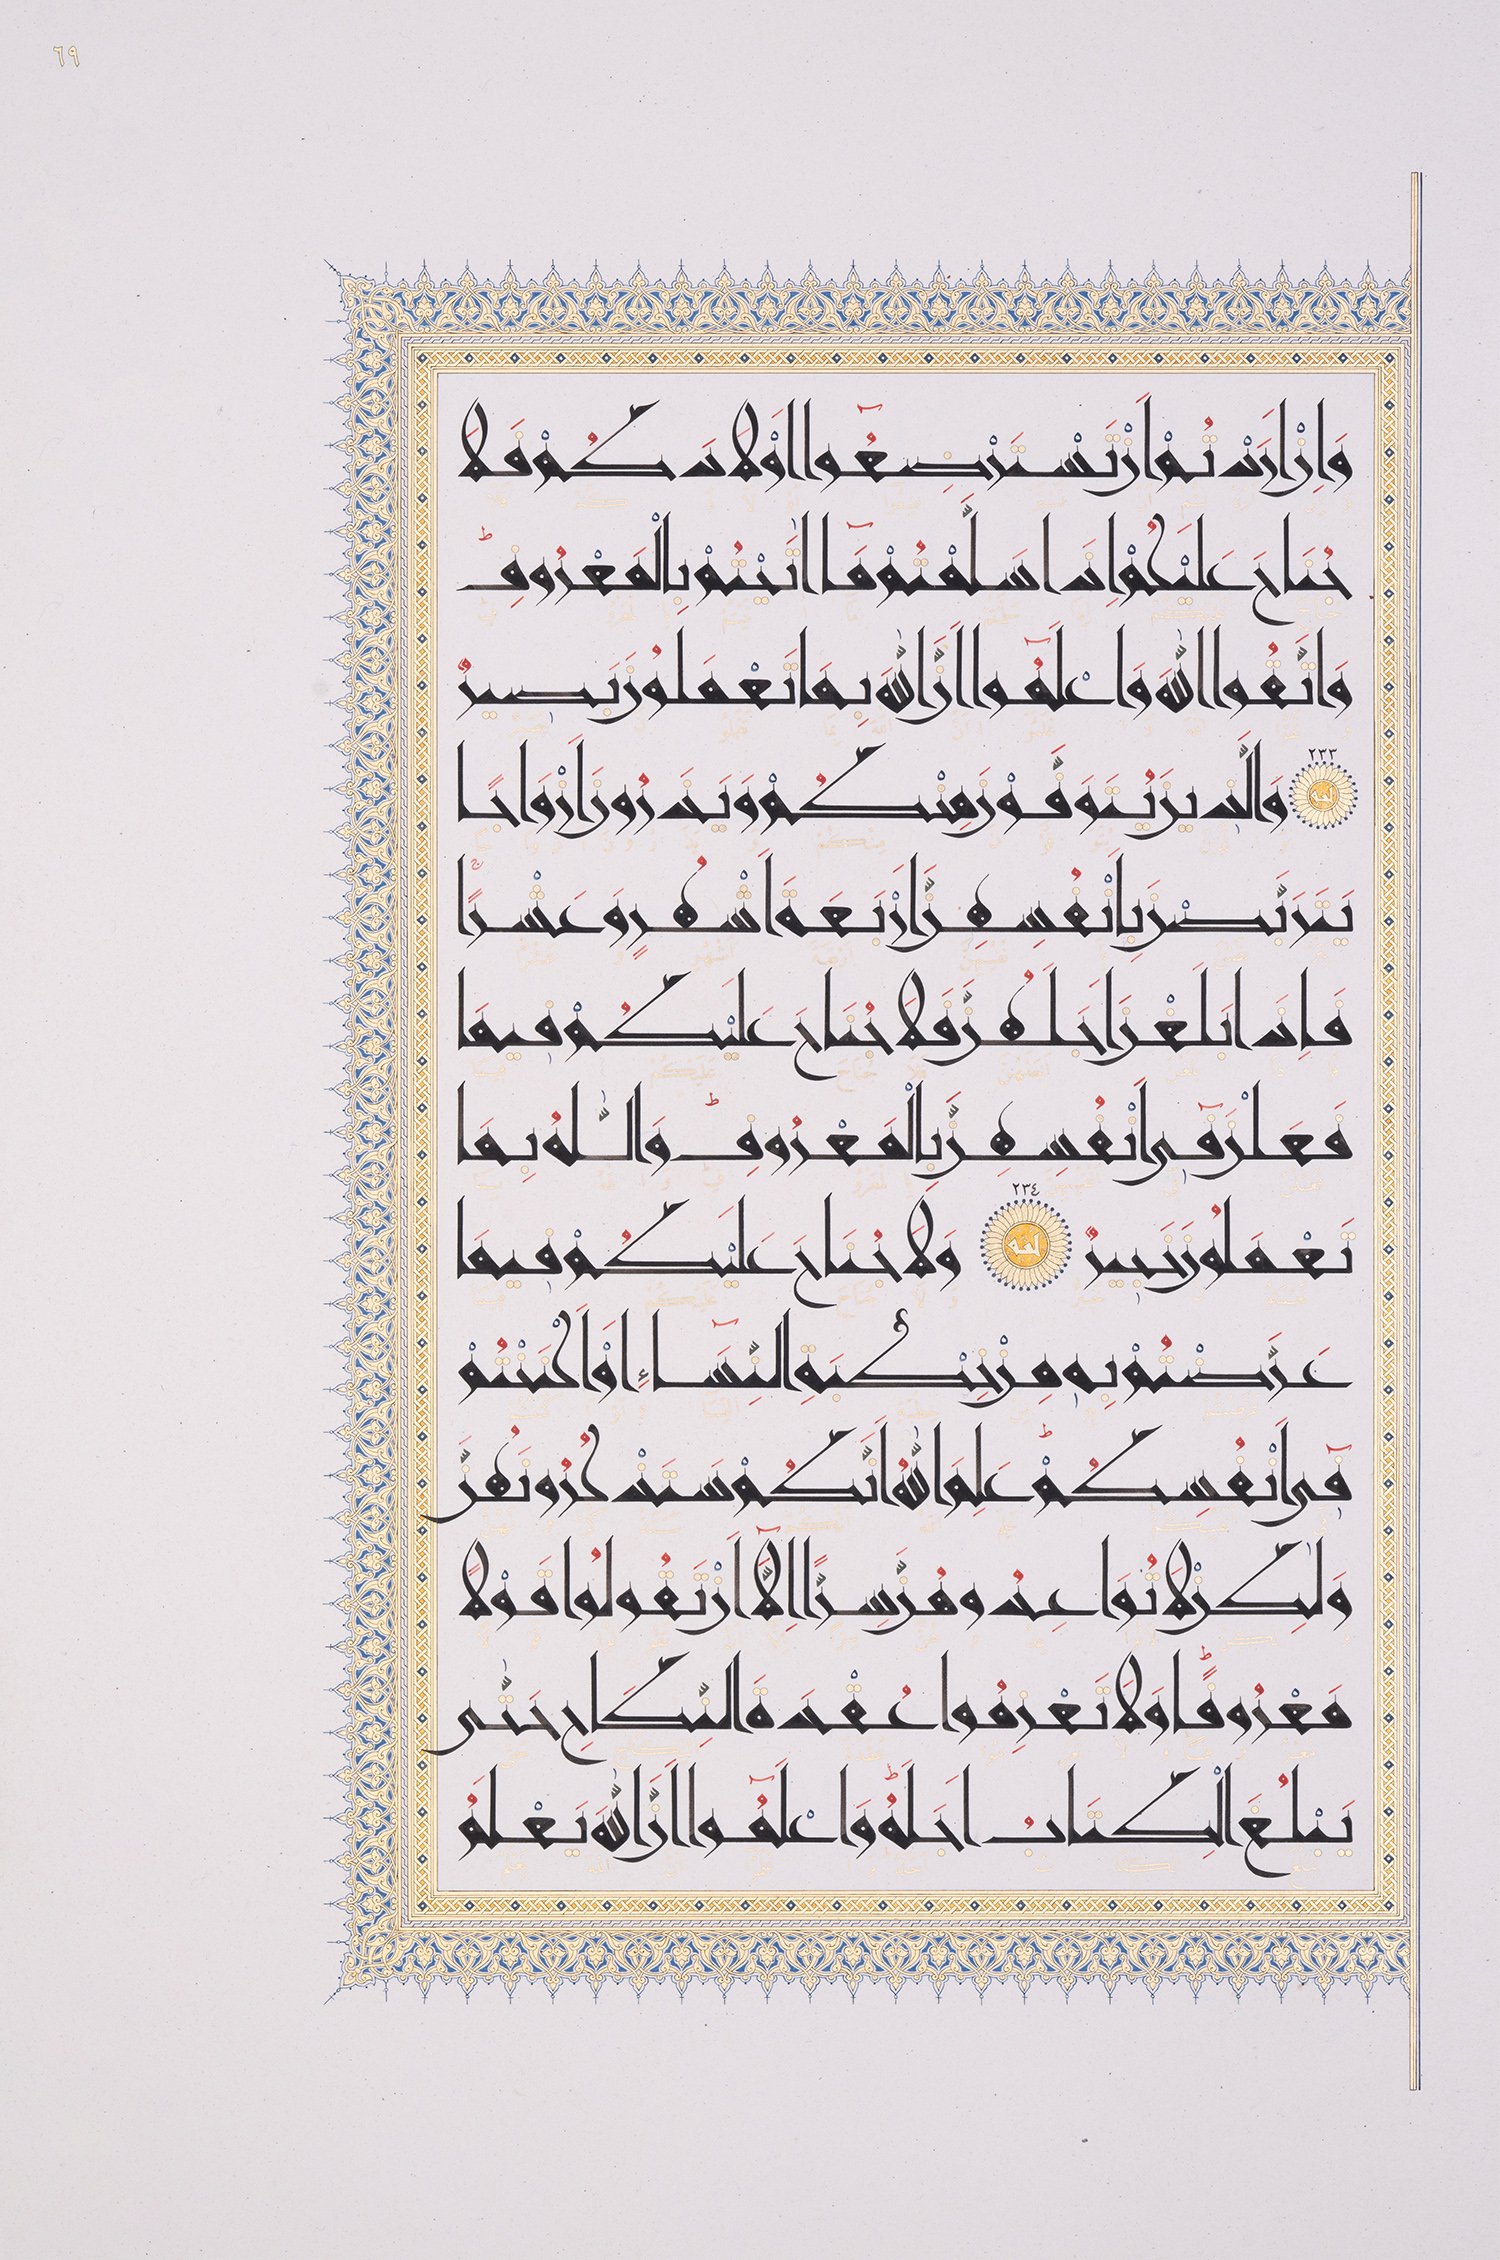 ٦٩
وَاِنْ اَرَدْتُمْ اَنْ تَسْتَرْضِعُٓوا اَوْلَادَكُمْ فَلَا
جُنَاحَ عَلَيْكُمْ اِذَا سَلَّمْتُمْ مَٓا اٰتَيْتُمْ بِالْمَعْرُوفِۜ
وَاتَّقُوا اللّٰهَ وَاعْلَمُٓوا اَنَّ اللّٰهَ بِمَا تَعْمَلُونَ بَصِيرٌ
٢٣٣ وَالَّذِينَ يُتَوَفَّوْنَ مِنْكُمْ وَيَذَرُونَ اَزْوَاجًا
يَتَرَبَّصْنَ بِاَنْفُسِهِنَّ اَرْبَعَةَ اَشْهُرٍ وَعَشْرًاۚ
فَاِذَا بَلَغْنَ اَجَلَهُنَّ فَلَا جُنَاحَ عَلَيْكُمْ فِيمَا
فَعَلْنَ فِٓي اَنْفُسِهِنَّ بِالْمَعْرُوفِۜ وَاللّٰهُ بِمَا
تَعْمَلُونَ خَبِيرٌ ٢٣٤ وَلَا جُنَاحَ عَلَيْكُمْ فِيمَا
عَرَّضْتُمْ بِهِ مِنْ خِطْبَةِ النِّسَٓاءِ اَوْ اَكْنَنْتُمْ
فِٓي اَنْفُسِكُمْ عَلِمَ اللّٰهُ اَنَّكُمْ سَتَذْكُرُونَهُنَّ
وَلٰكِنْ لَا تُوَاعِدُوهُنَّ سِرًّا اِلَّٓا اَنْ تَقُولُوا قَوْلًا
مَعْرُوفًاۜ وَلَا تَعْزِمُوا عُقْدَةَ النِّكَاحِ حَتّٰى
يَبْلُغَ الْكِتَابُ اَجَلَهُۜ وَاعْلَمُٓوا اَنَّ اللّٰهَ يَعْلَمُ